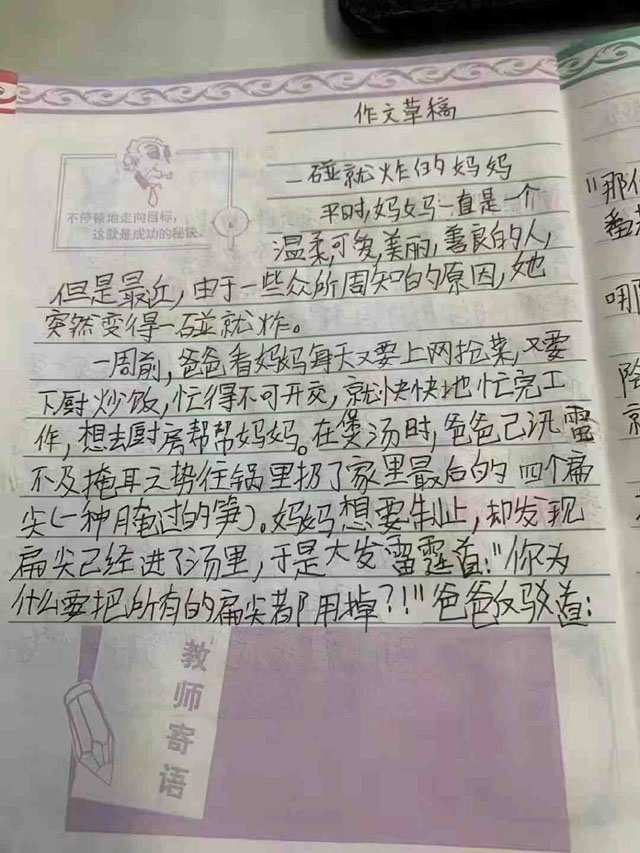 作文草稿
不停顿地走向目标，
这就是成功的秘诀。
一碰就炸的妈妈
平时，妈妈一直是一个
温柔，可爱，美丽，善良的人，
但是最近，由于一些众所周知的原因，她
突然变得一碰就炸。
一周前，爸爸看妈妈每天又要上网抢菜，又要
下厨炒饭，忙得不可开交，就快快地忙完工
作，想去厨房帮帮妈妈。在煲汤时，爸爸已迅雷
不及掩耳之势往锅里扔了家里最后的四个扁
尖(一种腌过的笋)。妈妈想要制止，却发现
扁尖已经进了汤里，于是大发雷霆道："你为
什么要把所有的扁尖都用掉?!"爸爸反驳道：
教师寄语
"那
番
哪
除
就